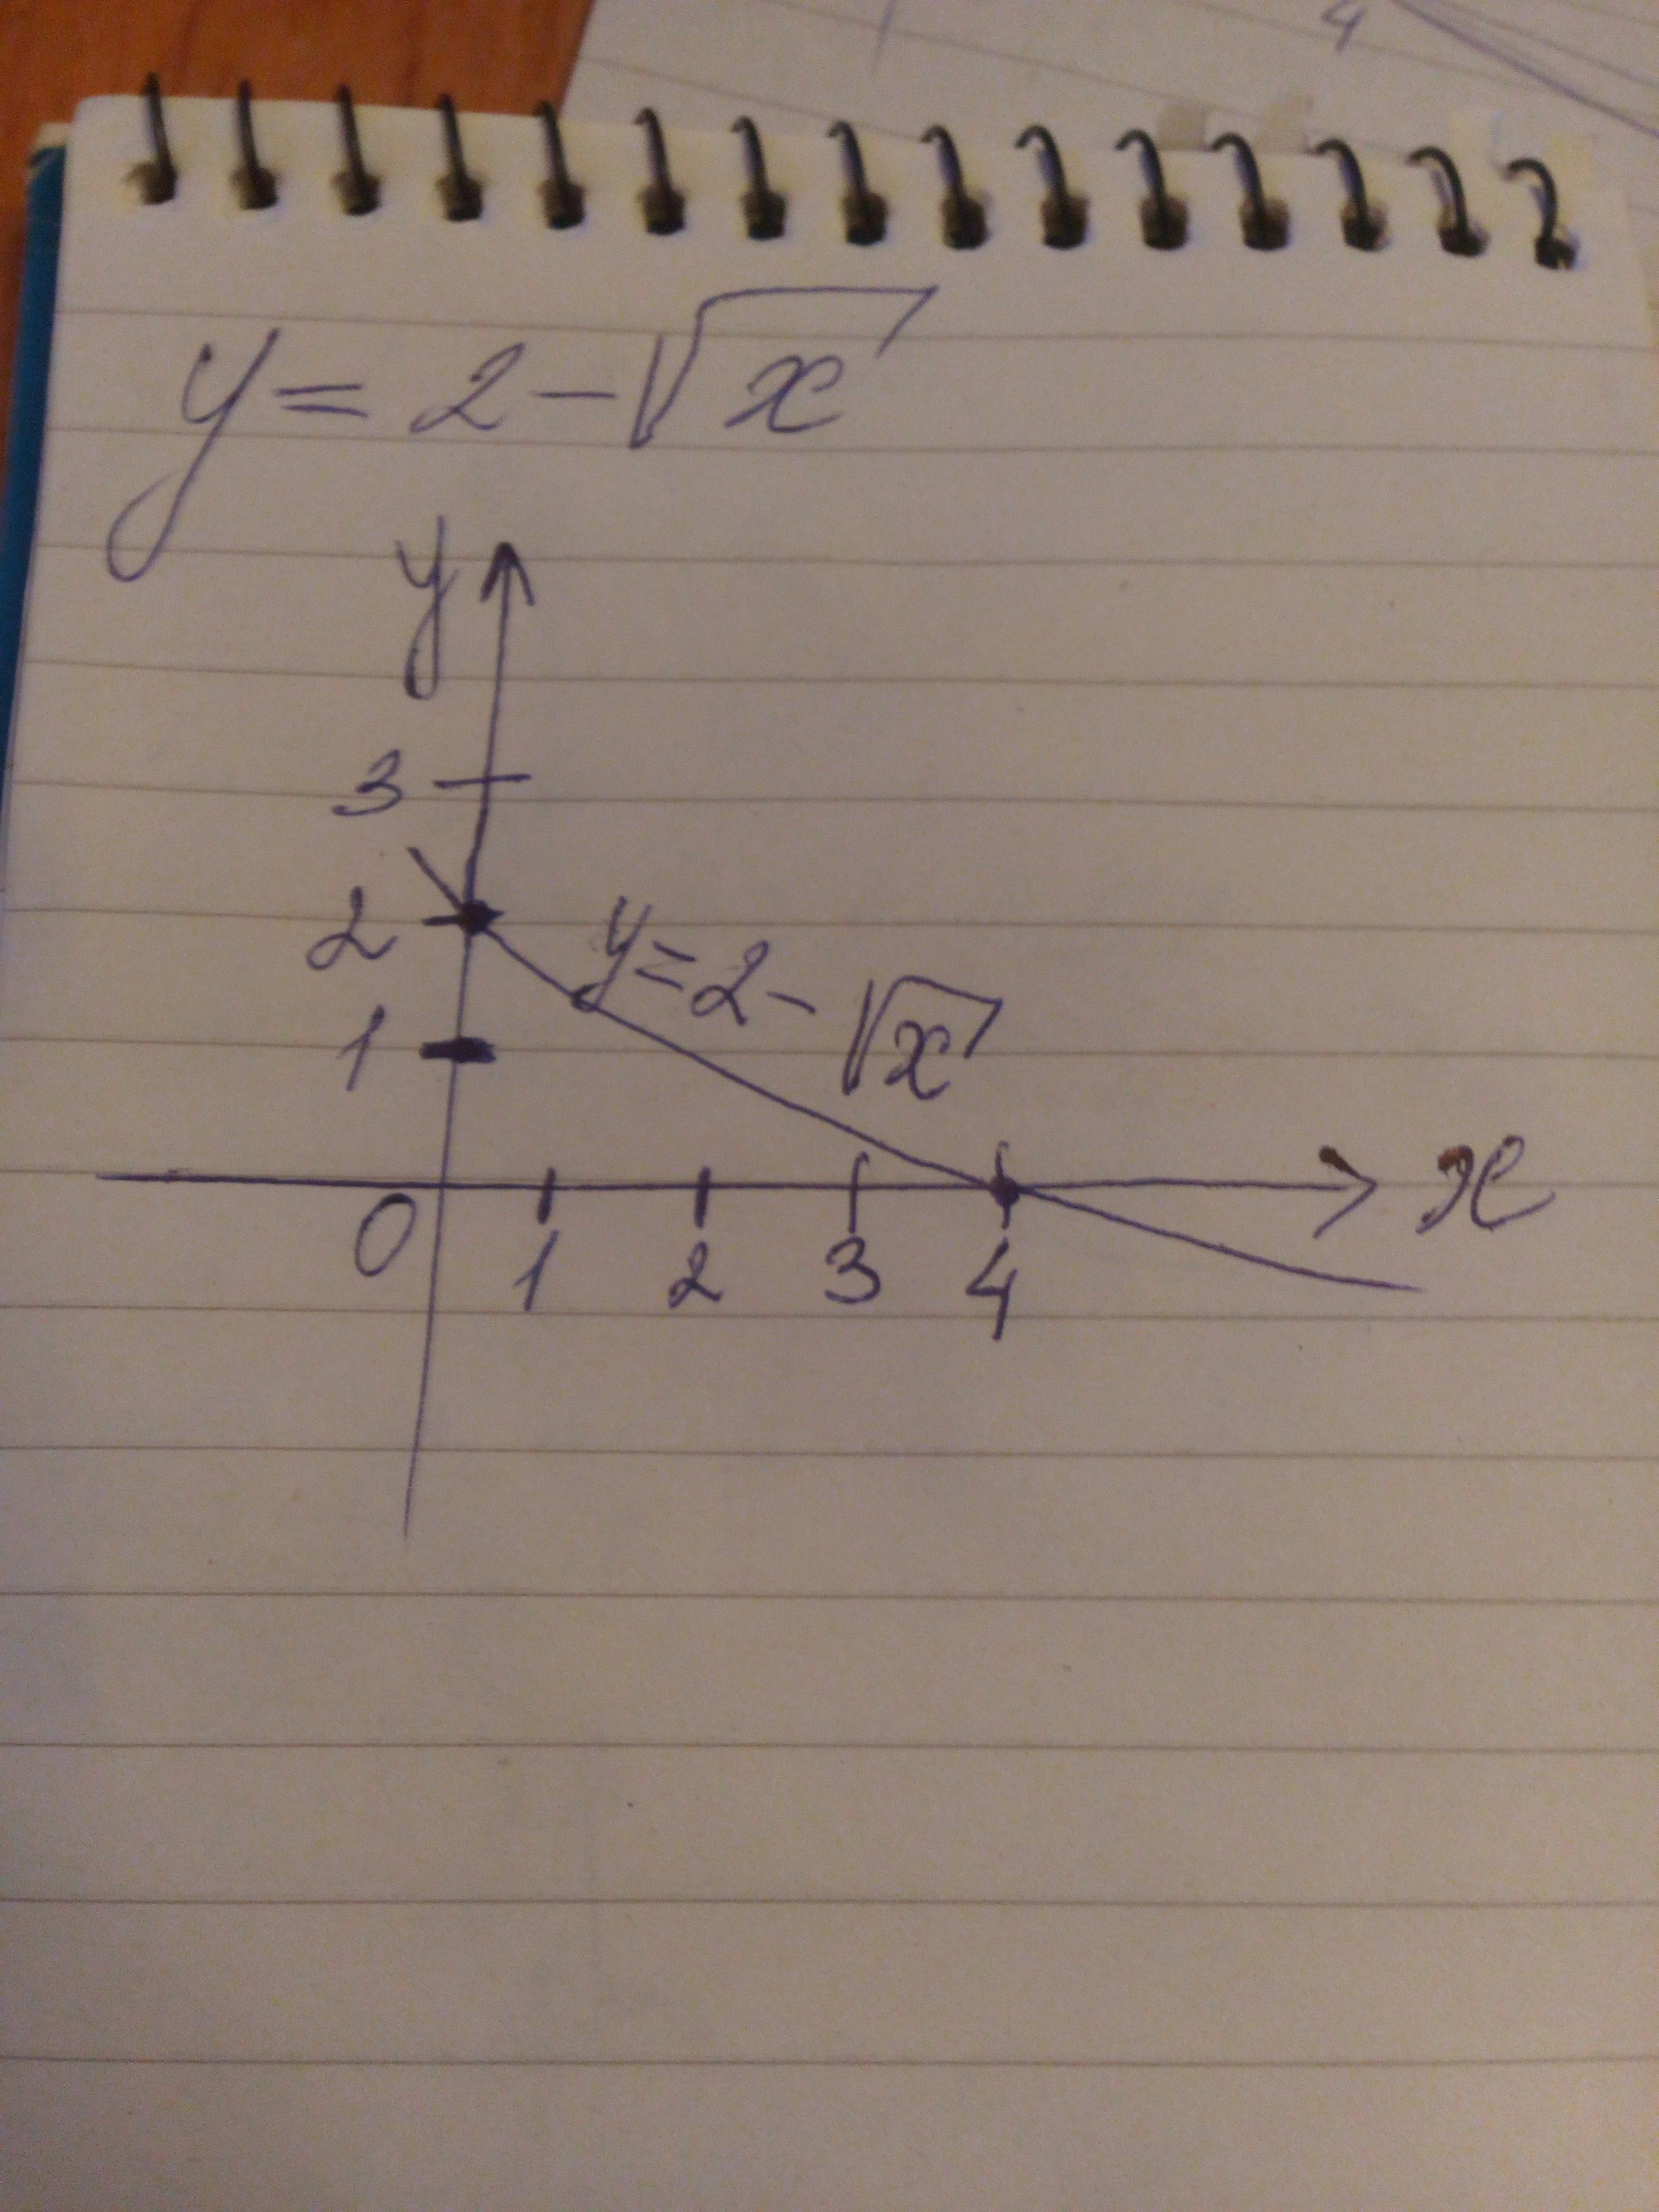 4
y = 2 - √x
y
3
2
y = 2 - √x
1
x
0 1 2 3 4